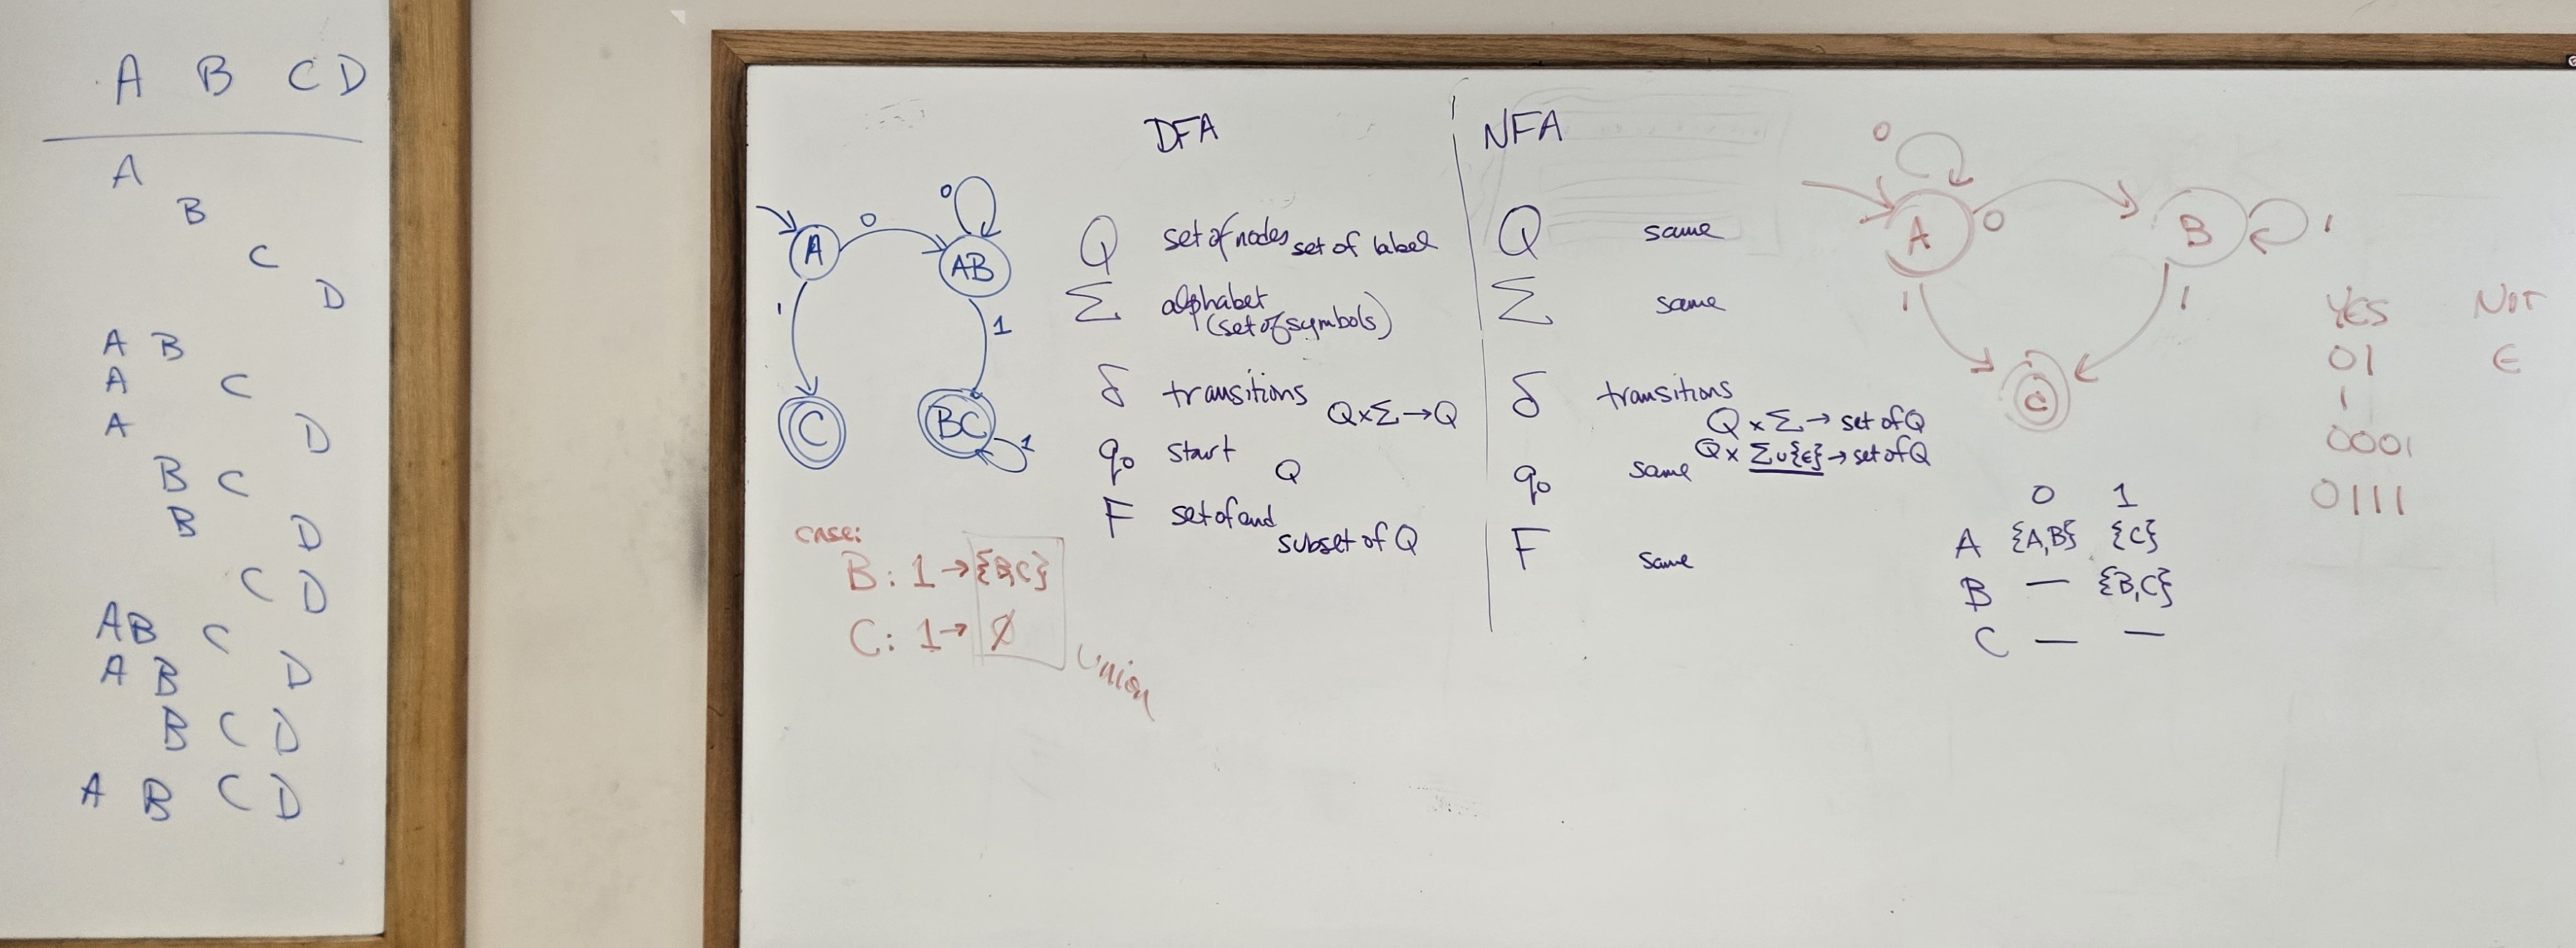 A B C D
A
B
C
D
A B
A C
A D
B C
B D
C D
AB C
A B D
B C D
A B C D
0 0
A AB
1 1
C BC 1
case:
B: 1 → {B,C}
C: 1 → ∅
union
DFA
Q set of nodes set of label
Σ alphabet
(set of symbols)
δ transitions Q×Σ→Q
q₀ start Q
F set of end
subset of Q
NFA
Q same
Σ same
δ transitions
Q × Σ → set of Q
Q × Σ∪{ϵ} → set of Q
q₀ same
F same
0
A 0 B 1
1 1
C
0 1
A {A,B} {C}
B — {B,C}
C — —
YES NOT
01 ϵ
1
0001
0111